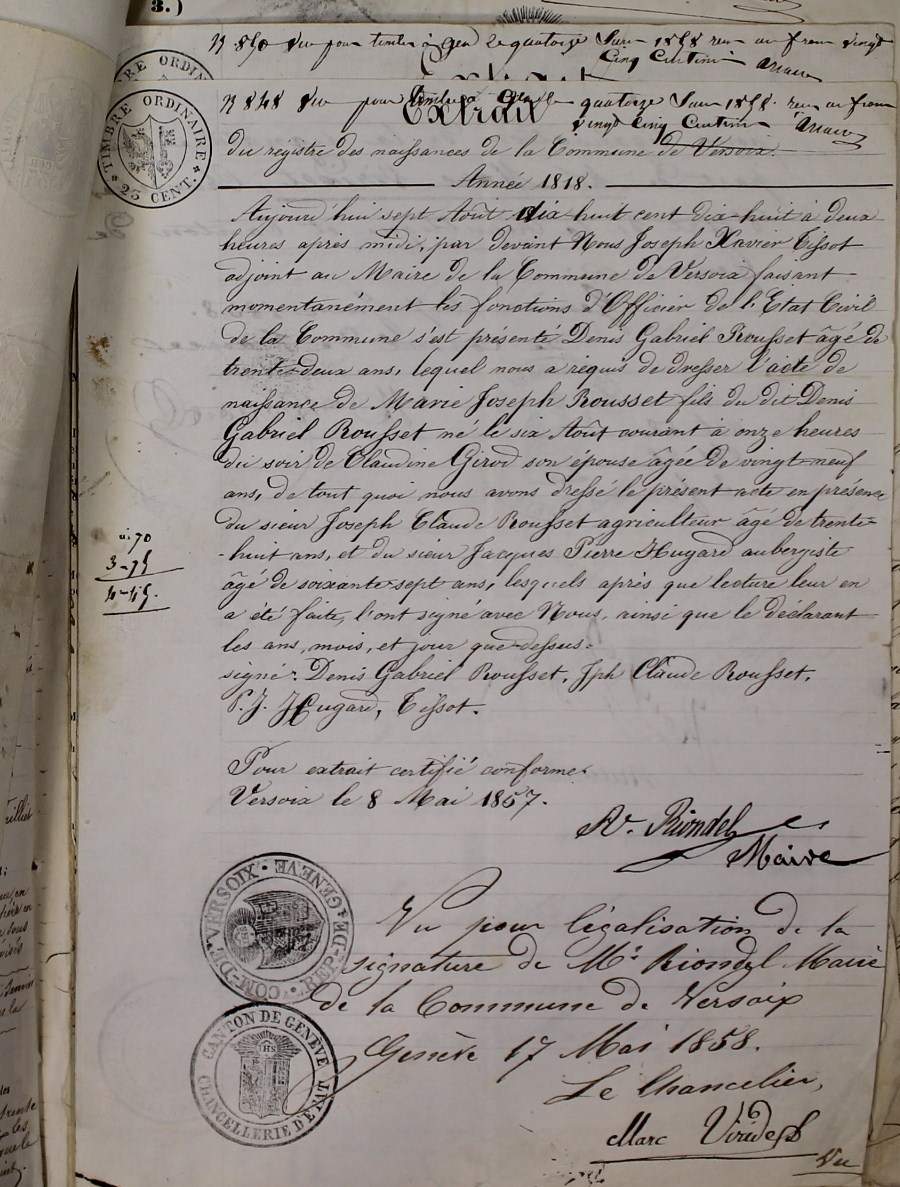 3.)
N 850 Vu pour timbre à Gex le quatorze Juin 1858 reçu un franc vingt
cinq centimes
N 848 Vu pour timbre à Gex le quatorze Juin 1858 reçu un franc
vingt cinq centimes
Extrait
du registre des naissances de la Commune de Versoix.
Année 1818.
Aujourd'hui sept Août dix-huit cent dix-huit à deux
heures après midi, par devant Nous Joseph Xavier Tissot
adjoint au Maire de la Commune de Versoix faisant
momentanément les fonctions d'Officier de l'Etat Civil
de la Commune s'est présenté Denis Gabriel Rousset âgé de
trente-deux ans, lequel nous a requis de dresser l'acte de
naissance de Marie Joseph Rousset fils du dit Denis
Gabriel Rousset né le six Août courant à onze heures
du soir de Claudine Girod son épouse âgée de vingt-neuf
ans, de tout quoi nous avons dressé le présent acte en présence
du sieur Joseph Claude Rousset agriculteur âgé de trente-
-huit ans, et du sieur Jacques Pierre Hugard aubergiste
âgé de soixante-sept ans, lesquels après que lecture leur en
a été faite, l'ont signé avec Nous, ainsi que le déclarant
les ans, mois, et jour que dessus.
signé: Denis Gabriel Rousset, Jph Claude Rousset,
P. J. Hugard, Tissot.
Pour extrait certifié conforme.
Versoix le 8 Mai 1857.
Riondel
Maire
Vu pour légalisation de la
signature de Mr. Riondel Maire
de la Commune de Versoix
Genève 17 Mai 1858.
Le Chancelier,
Marc Viridet
Vu
TIMBRE ORDINAIRE
25 CENT.
COM-DE-VERSOIX
CANTON DE GENEVE
CHANCELLERIE D'ETAT